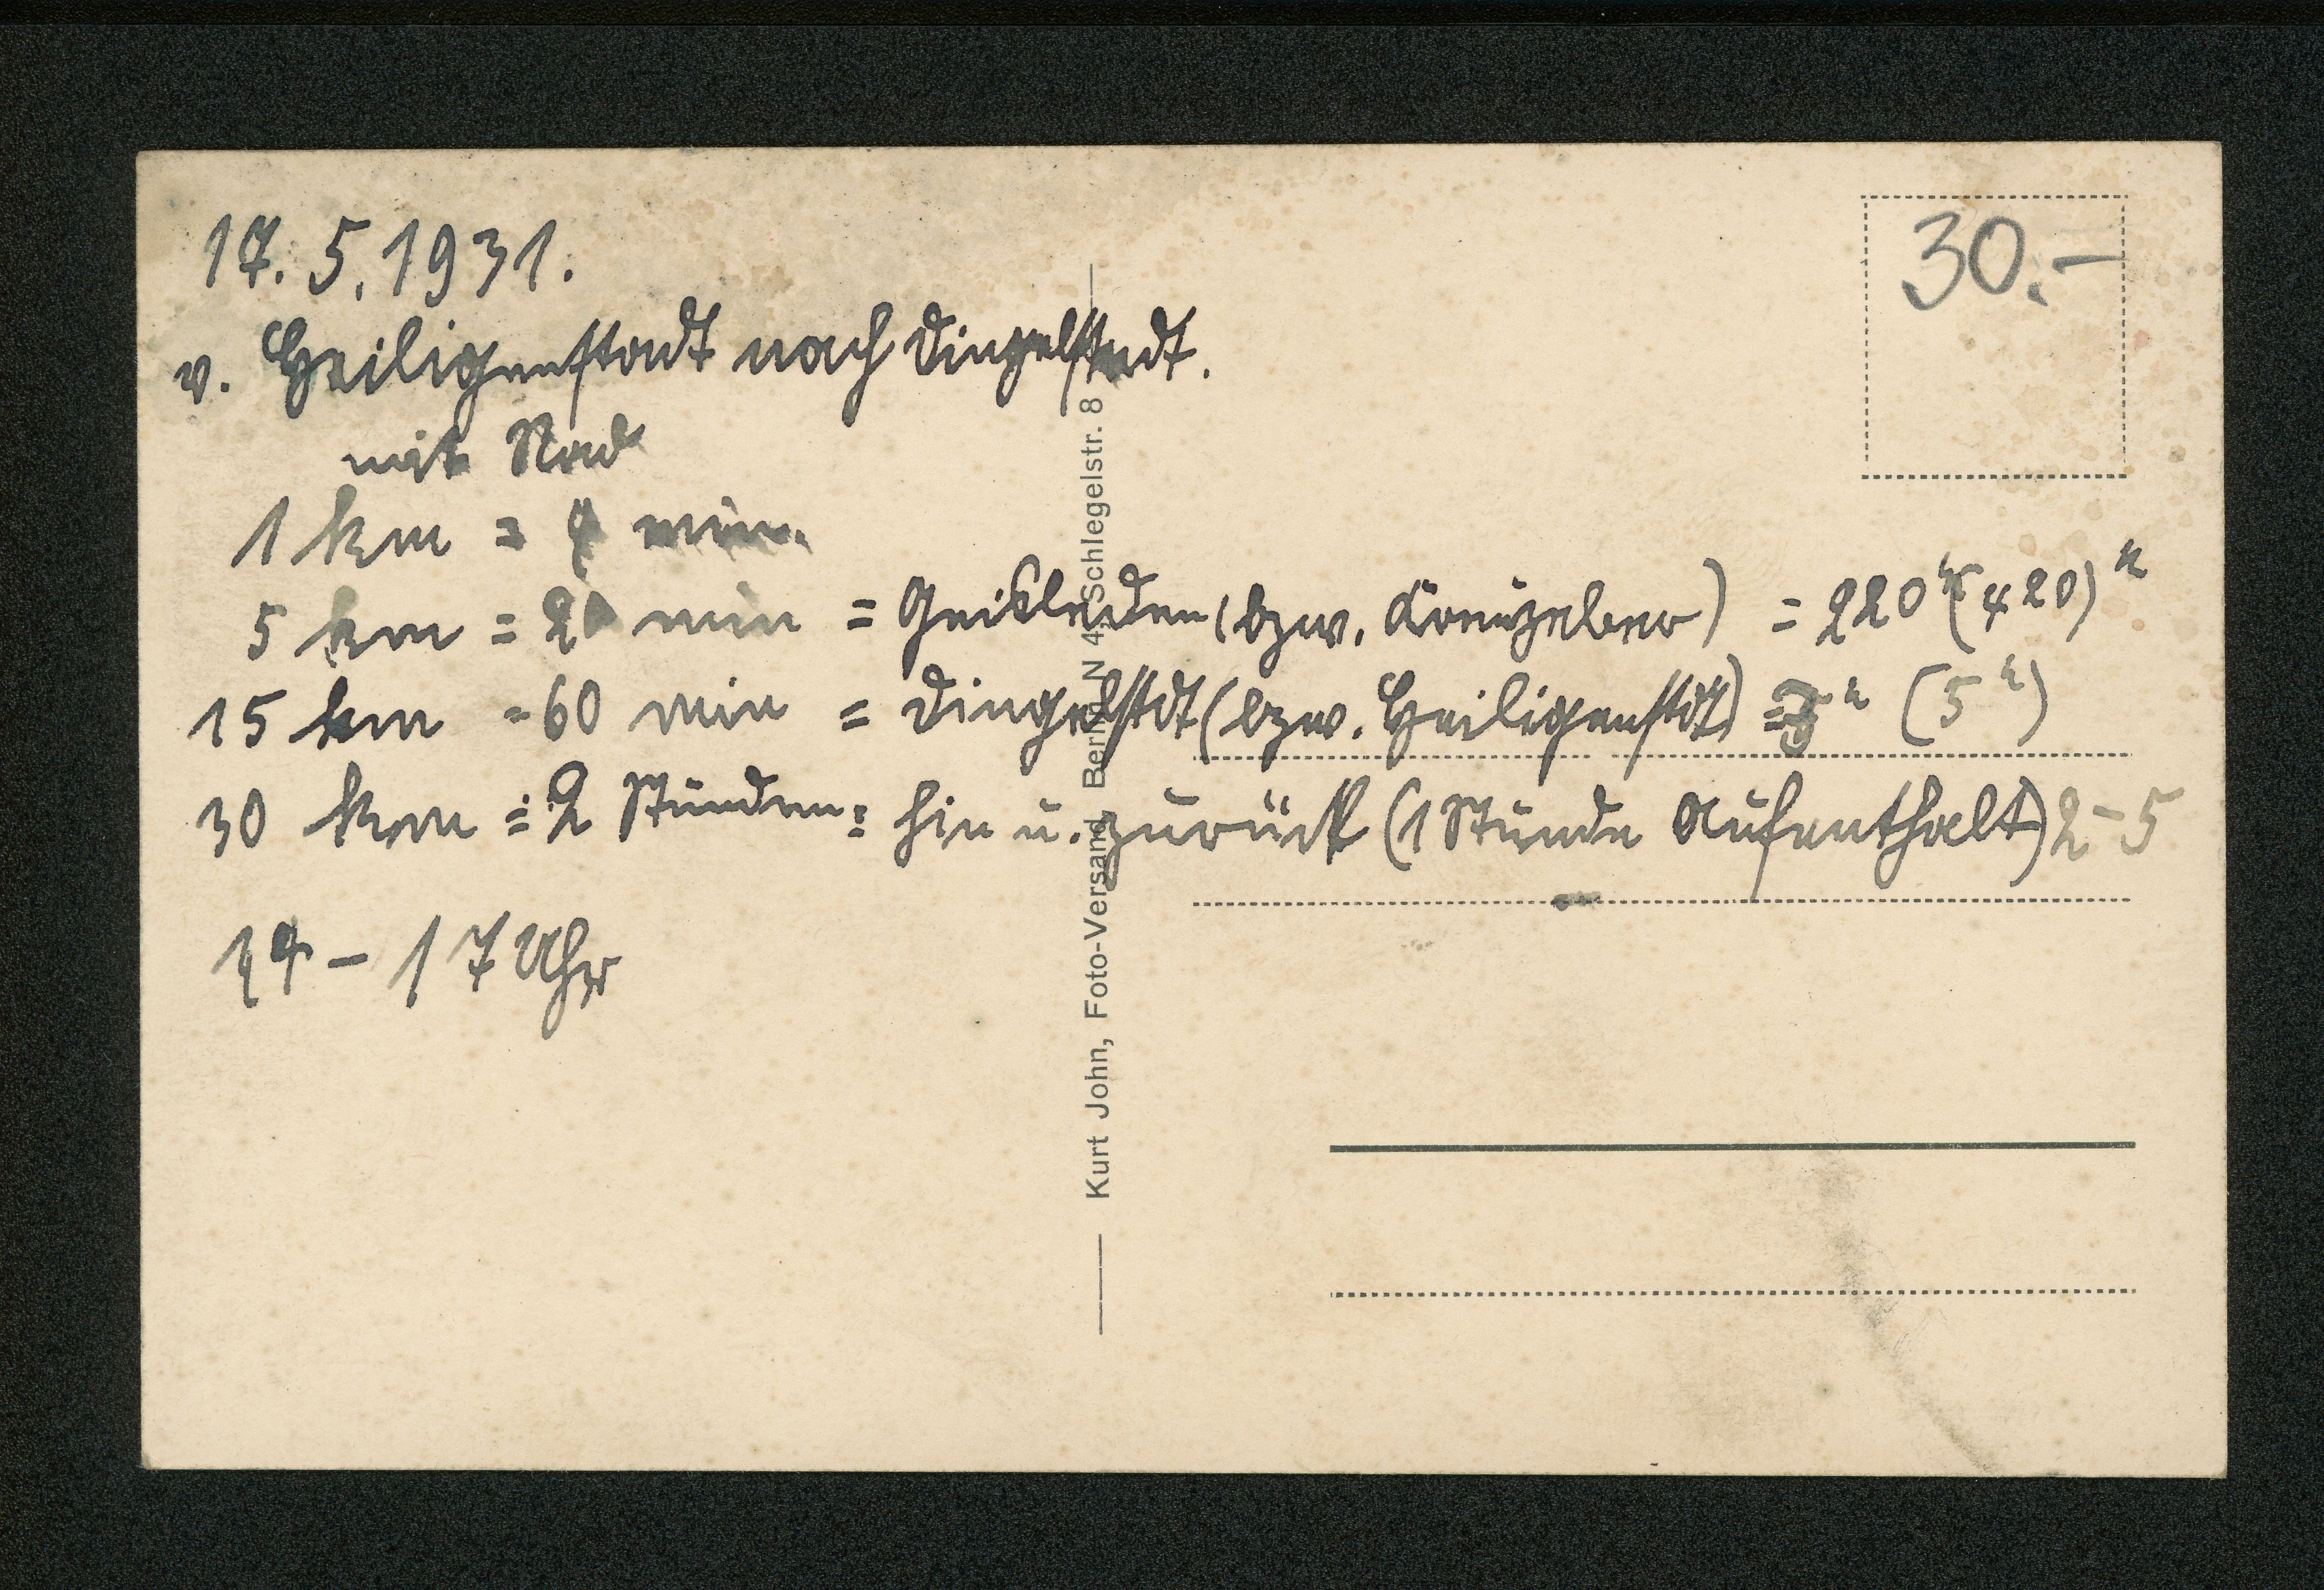 17.5.1931.
30.-
v. Heiligenstadt nach Dingelstedt.
mit Rad
1 km = 4 min.
5 km = 20 min = Geisleden (bzw. Kreuzeber) = 220 h (420) h
15 km = 60 min = Dingelstdt (bzw. Heiligenstdt) = 3 h (5 h)
30 km = 2 Stunden = hin u. zurück (1 Stunde Aufenthalt) 2-5
14 - 17 Uhr
Kurt John, Foto-Versand, Berlin N 4, Schlegelstr. 8